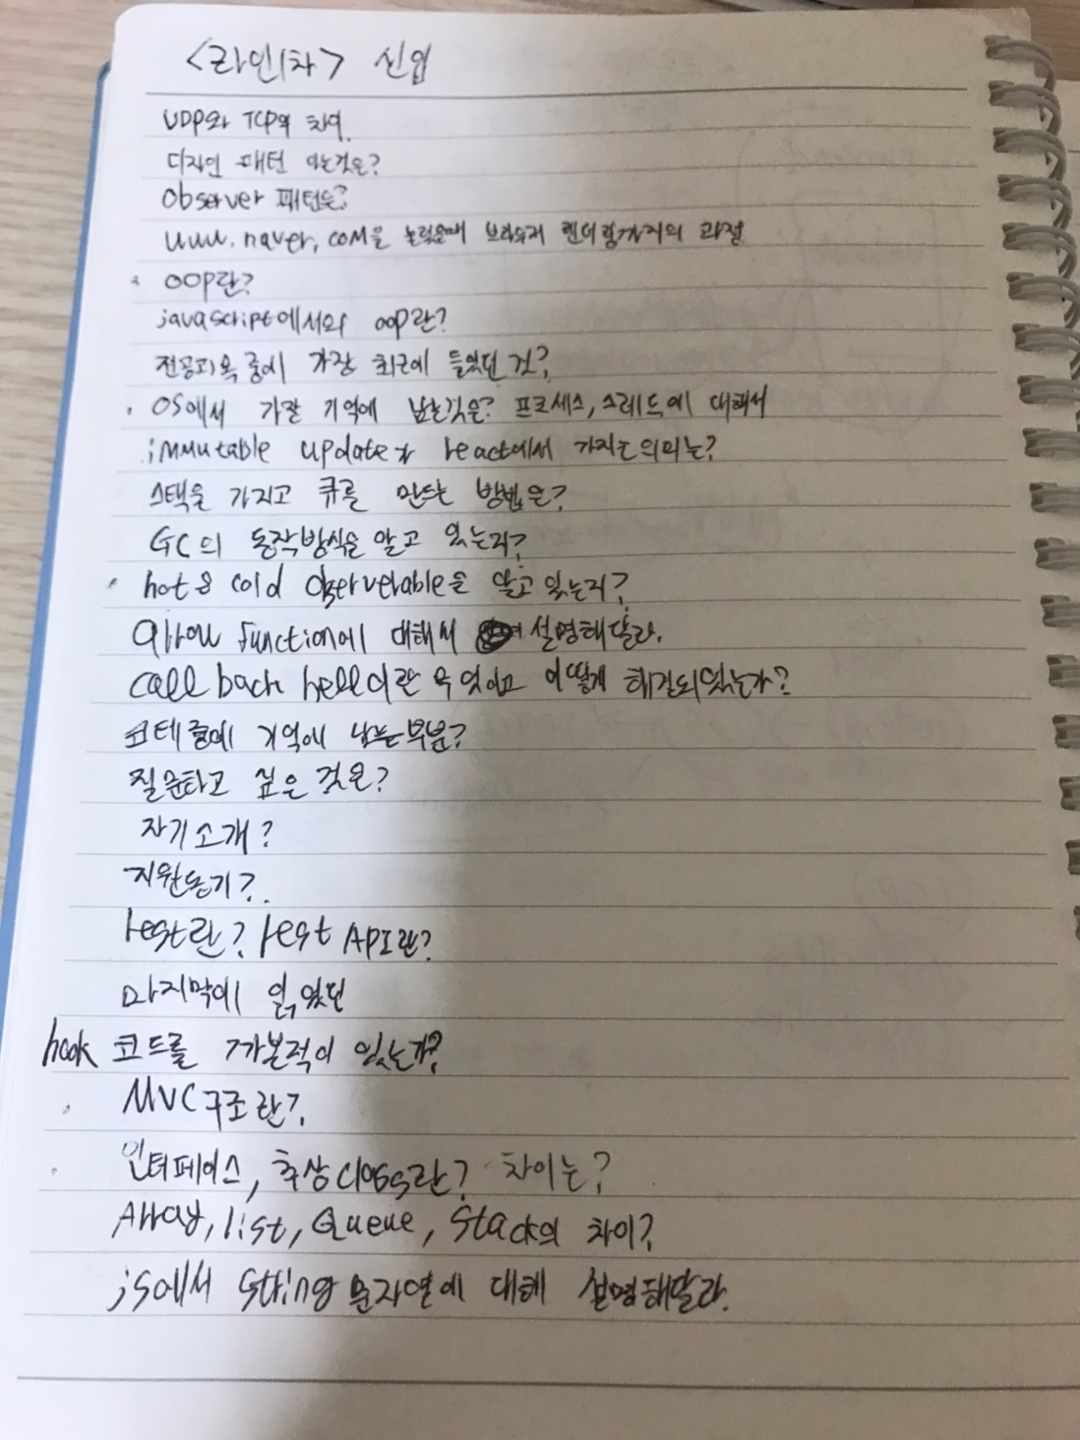 <라인1차> 신입
UDP와 TCP의 차이.
디자인 패턴 아는것은?
Observer 패턴은?
www.naver.com을 눌렀을때 브라우저 렌더링까지의 과정
OOP란?
javascript에서의 oop란?
전공과목 중에 가장 최근에 들었던 것?
OS에서 가장 기억에 남는것은? 프로세스, 스레드에 대해서
immutable update가 react에서 가지는 의미는?
스택을 가지고 큐를 만드는 방법은?
GC의 동작방식을 알고 있는지?
hot & cold observerable을 알고 있는지?
arrow function에 대해서 설명해달라.
callback hell이란 무엇이고 어떻게 해결되있는가?
코테 중에 기억에 남는부분?
질문하고 싶은 것은?
자기소개?
지원동기?
rest란? rest API란?
마지막에 읽었던
hook 코드를 까본적이 있는가?
MVC구조란?
인터페이스, 추상class란? 차이는?
Array, list, Queue, Stack의 차이?
js에서 string 문자열에 대해 설명해달라.